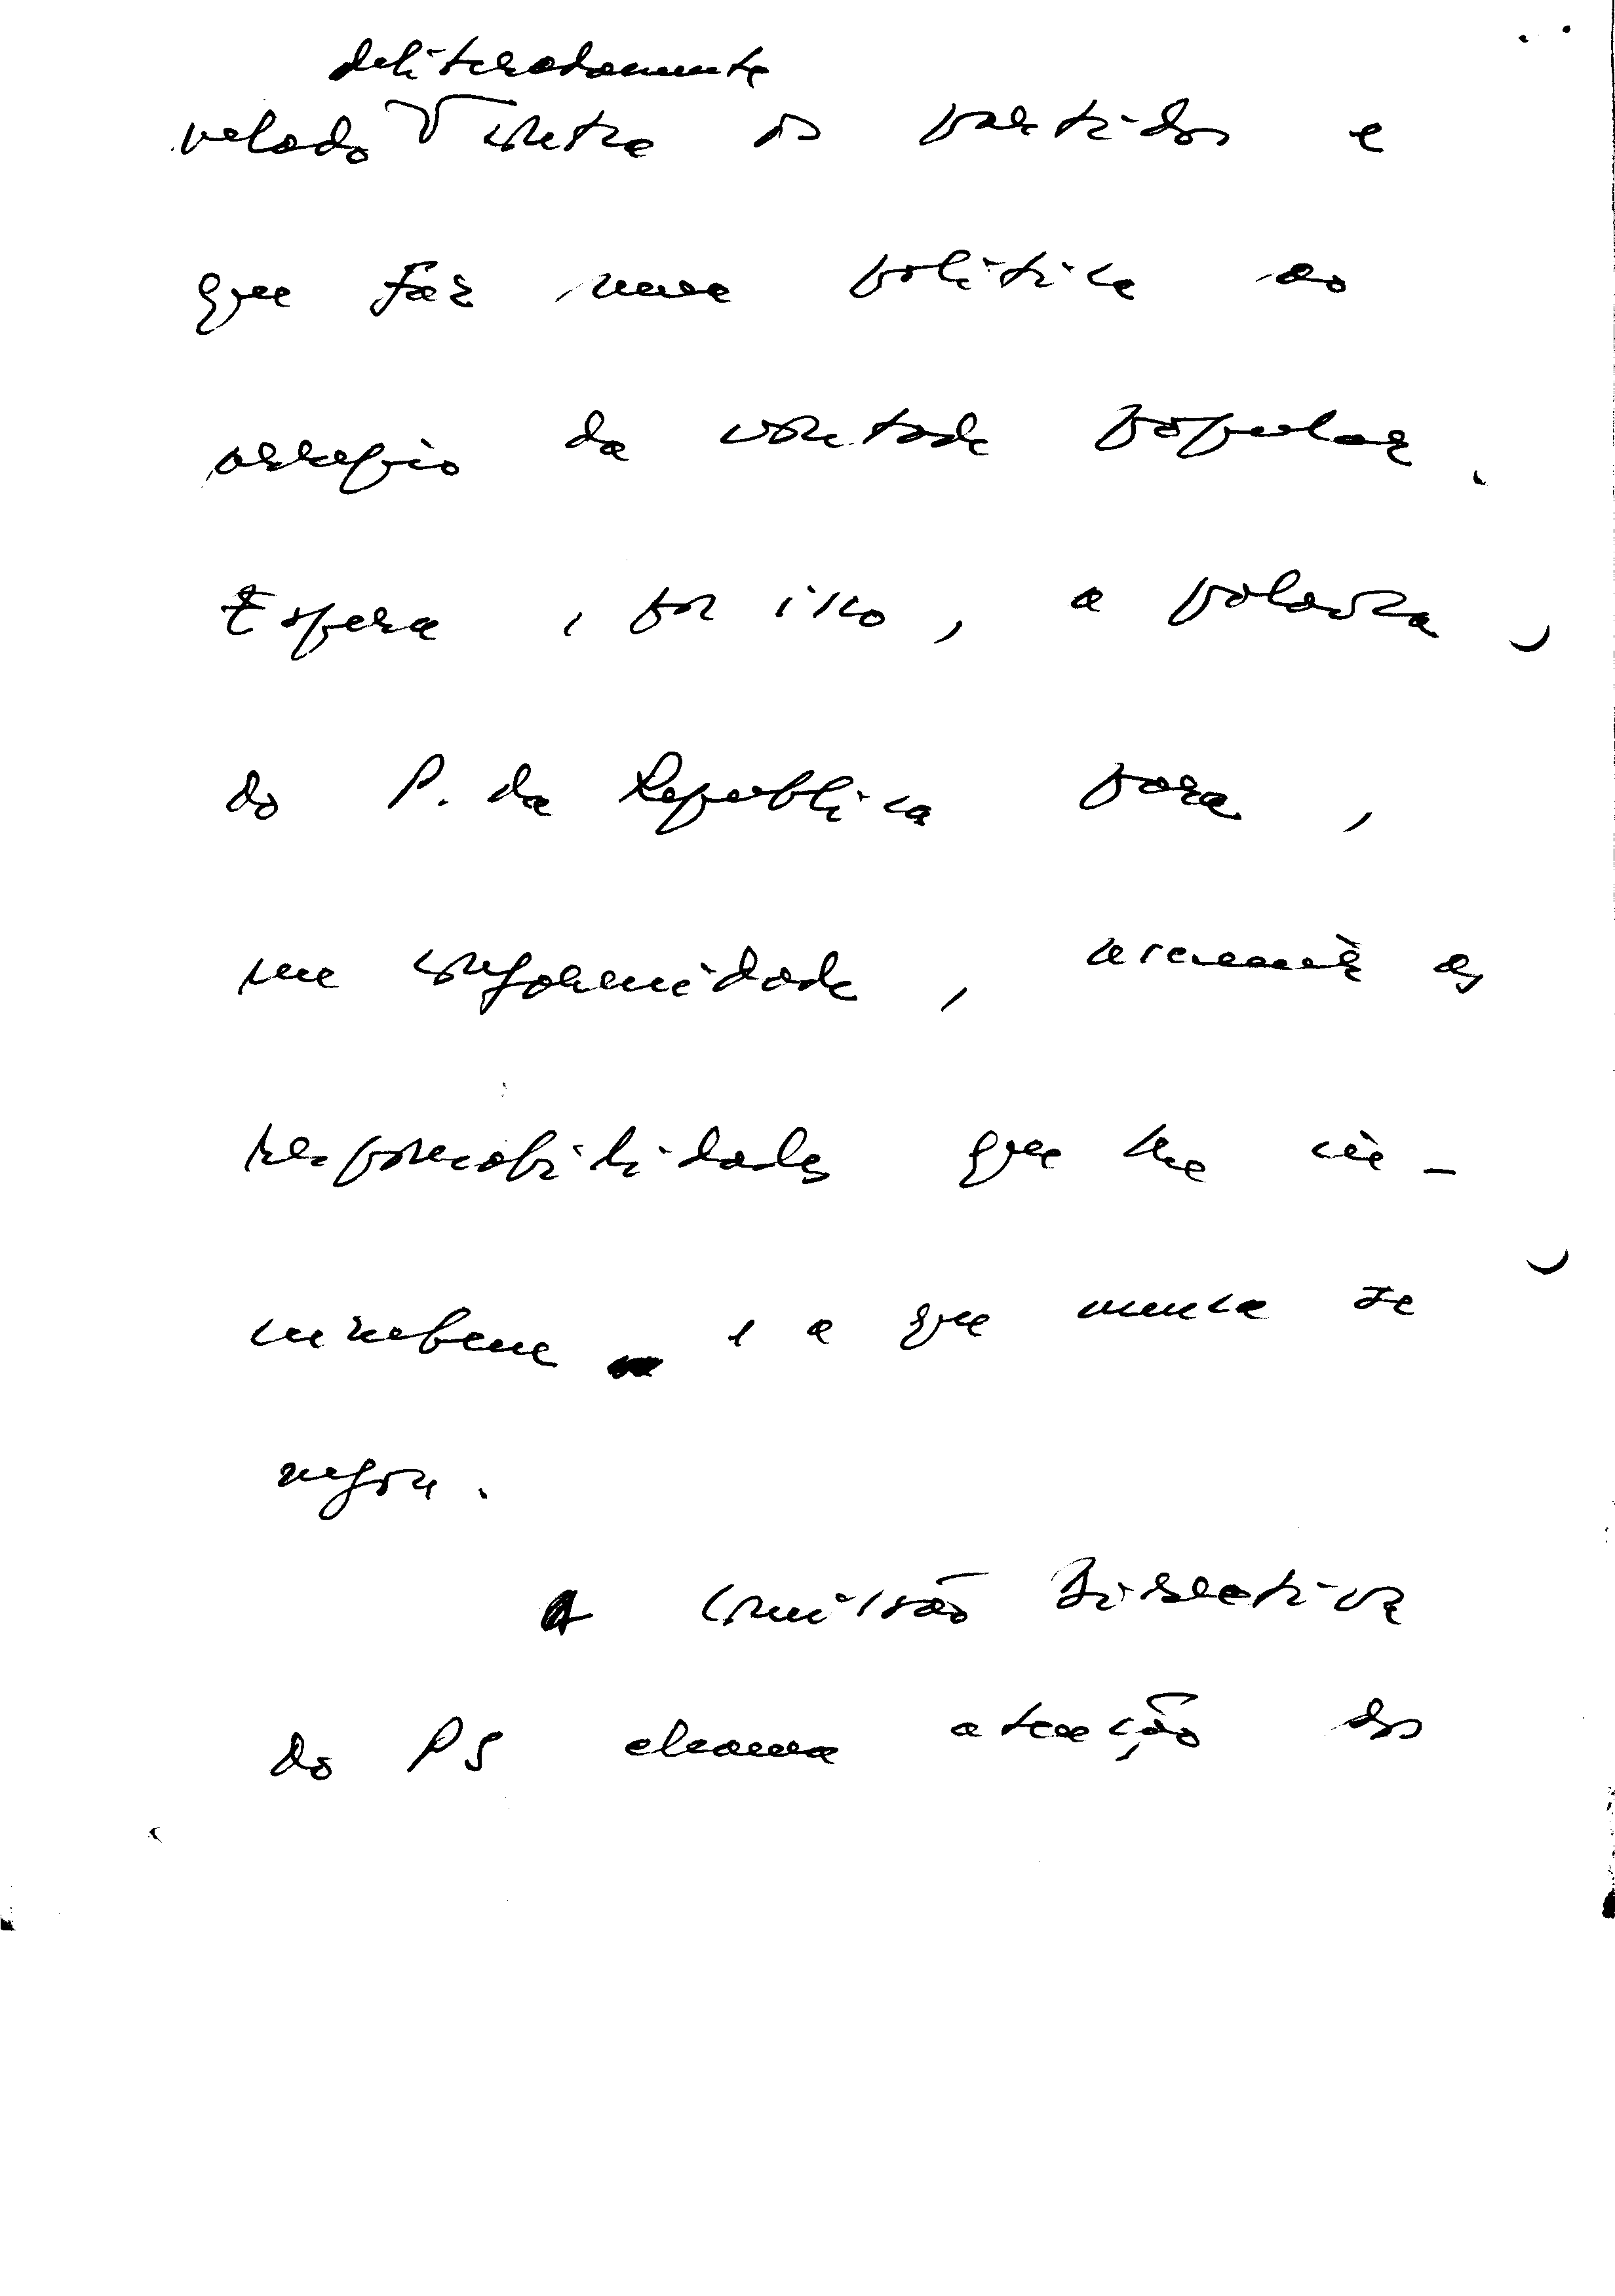 deliberadamente
velado contra os partidos e
que faz uma politica ao
arrepio da vontade popular.
Espera, por isso, a palavra,
do P. da Republica para,
em conformidade, assumir as
responsabilidades que lhe in-
cumbem e a que nunca se
negou.
A Comissão Directiva
do PS chama atenção dos